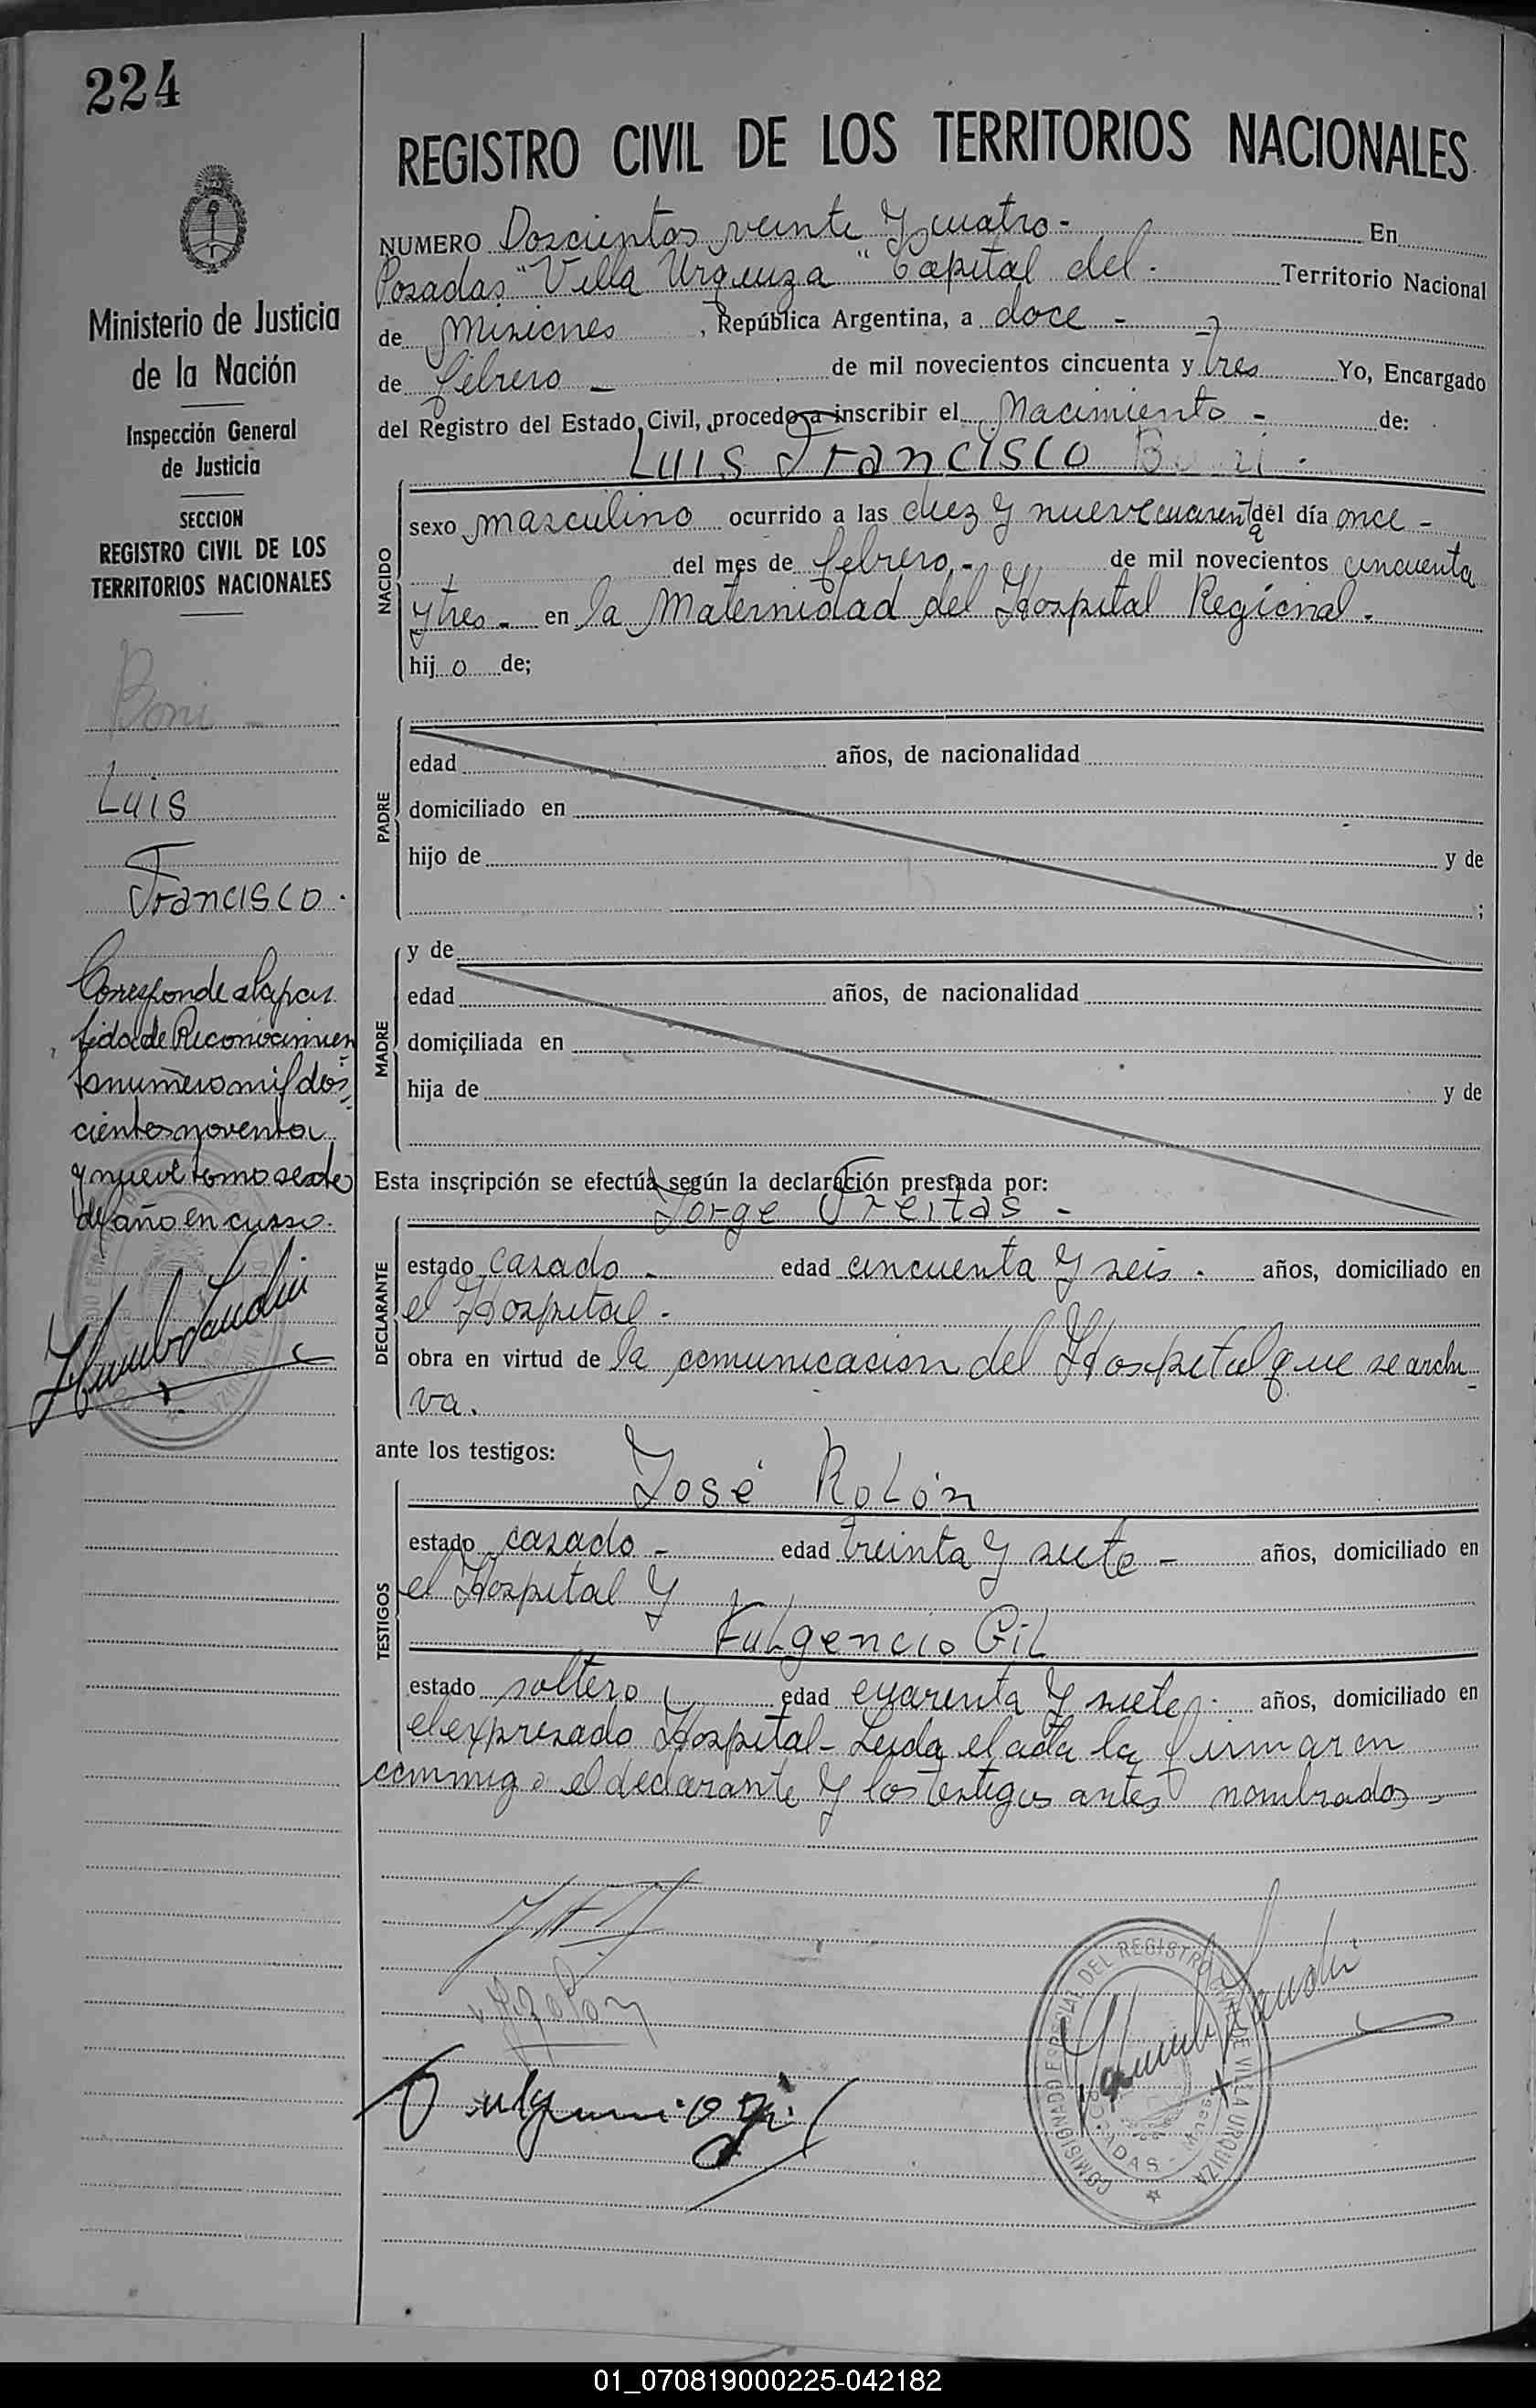 224
Ministerio de Justicia
de la Nación
Inspección General
de Justicia
SECCION
REGISTRO CIVIL DE LOS
TERRITORIOS NACIONALES
Boni -
Luis
Francisco.
Corresponde a la par
tida de Reconocimien
to numero mil dos
cientos noventa
y nueve tomo sexto
del año en curso.
REGISTRO CIVIL DE LOS TERRITORIOS NACIONALES
NUMERO Doscientos veinte y cuatro - En
Posadas "Villa Urquiza" Capital del. Territorio Nacional
de Misiones, República Argentina, a doce -
de febrero - de mil novecientos cincuenta y tres Yo, Encargado
del Registro del Estado Civil, procedo a inscribir el Nacimiento - de:
Luis Francisco
NACIDO
sexo masculino ocurrido a las diez y nueve cuarenta del día once -
del mes de febrero - de mil novecientos cincuenta
y tres - en la Maternidad del Hospital Regional.
hijo de;
PADRE
edad años, de nacionalidad
domiciliado en
hijo de y de
;
MADRE
y de
edad años, de nacionalidad
domiciliada en
hija de y de
Esta inscripción se efectúa según la declaración prestada por:
Jorge Freitas -
DECLARANTE
estado casado - edad cincuenta y seis. años, domiciliado en
el Hospital.
obra en virtud de la comunicacion del Hospital que se archi
va.
ante los testigos:
José Rolón
TESTIGOS
estado casado - edad treinta y siete - años, domiciliado en
el Hospital y
Fulgencio Gil
estado soltero edad cuarenta y siete. años, domiciliado en
el expresado Hospital - Leida el acta la firmaron
conmigo el declarante y los testigos antes nombrados -
Fulgencio Gil
COMISIONADO ESPECIAL DEL REGISTRO CIVIL DE VILLA URQUIZA
POSADAS -
01_070819000225-042182